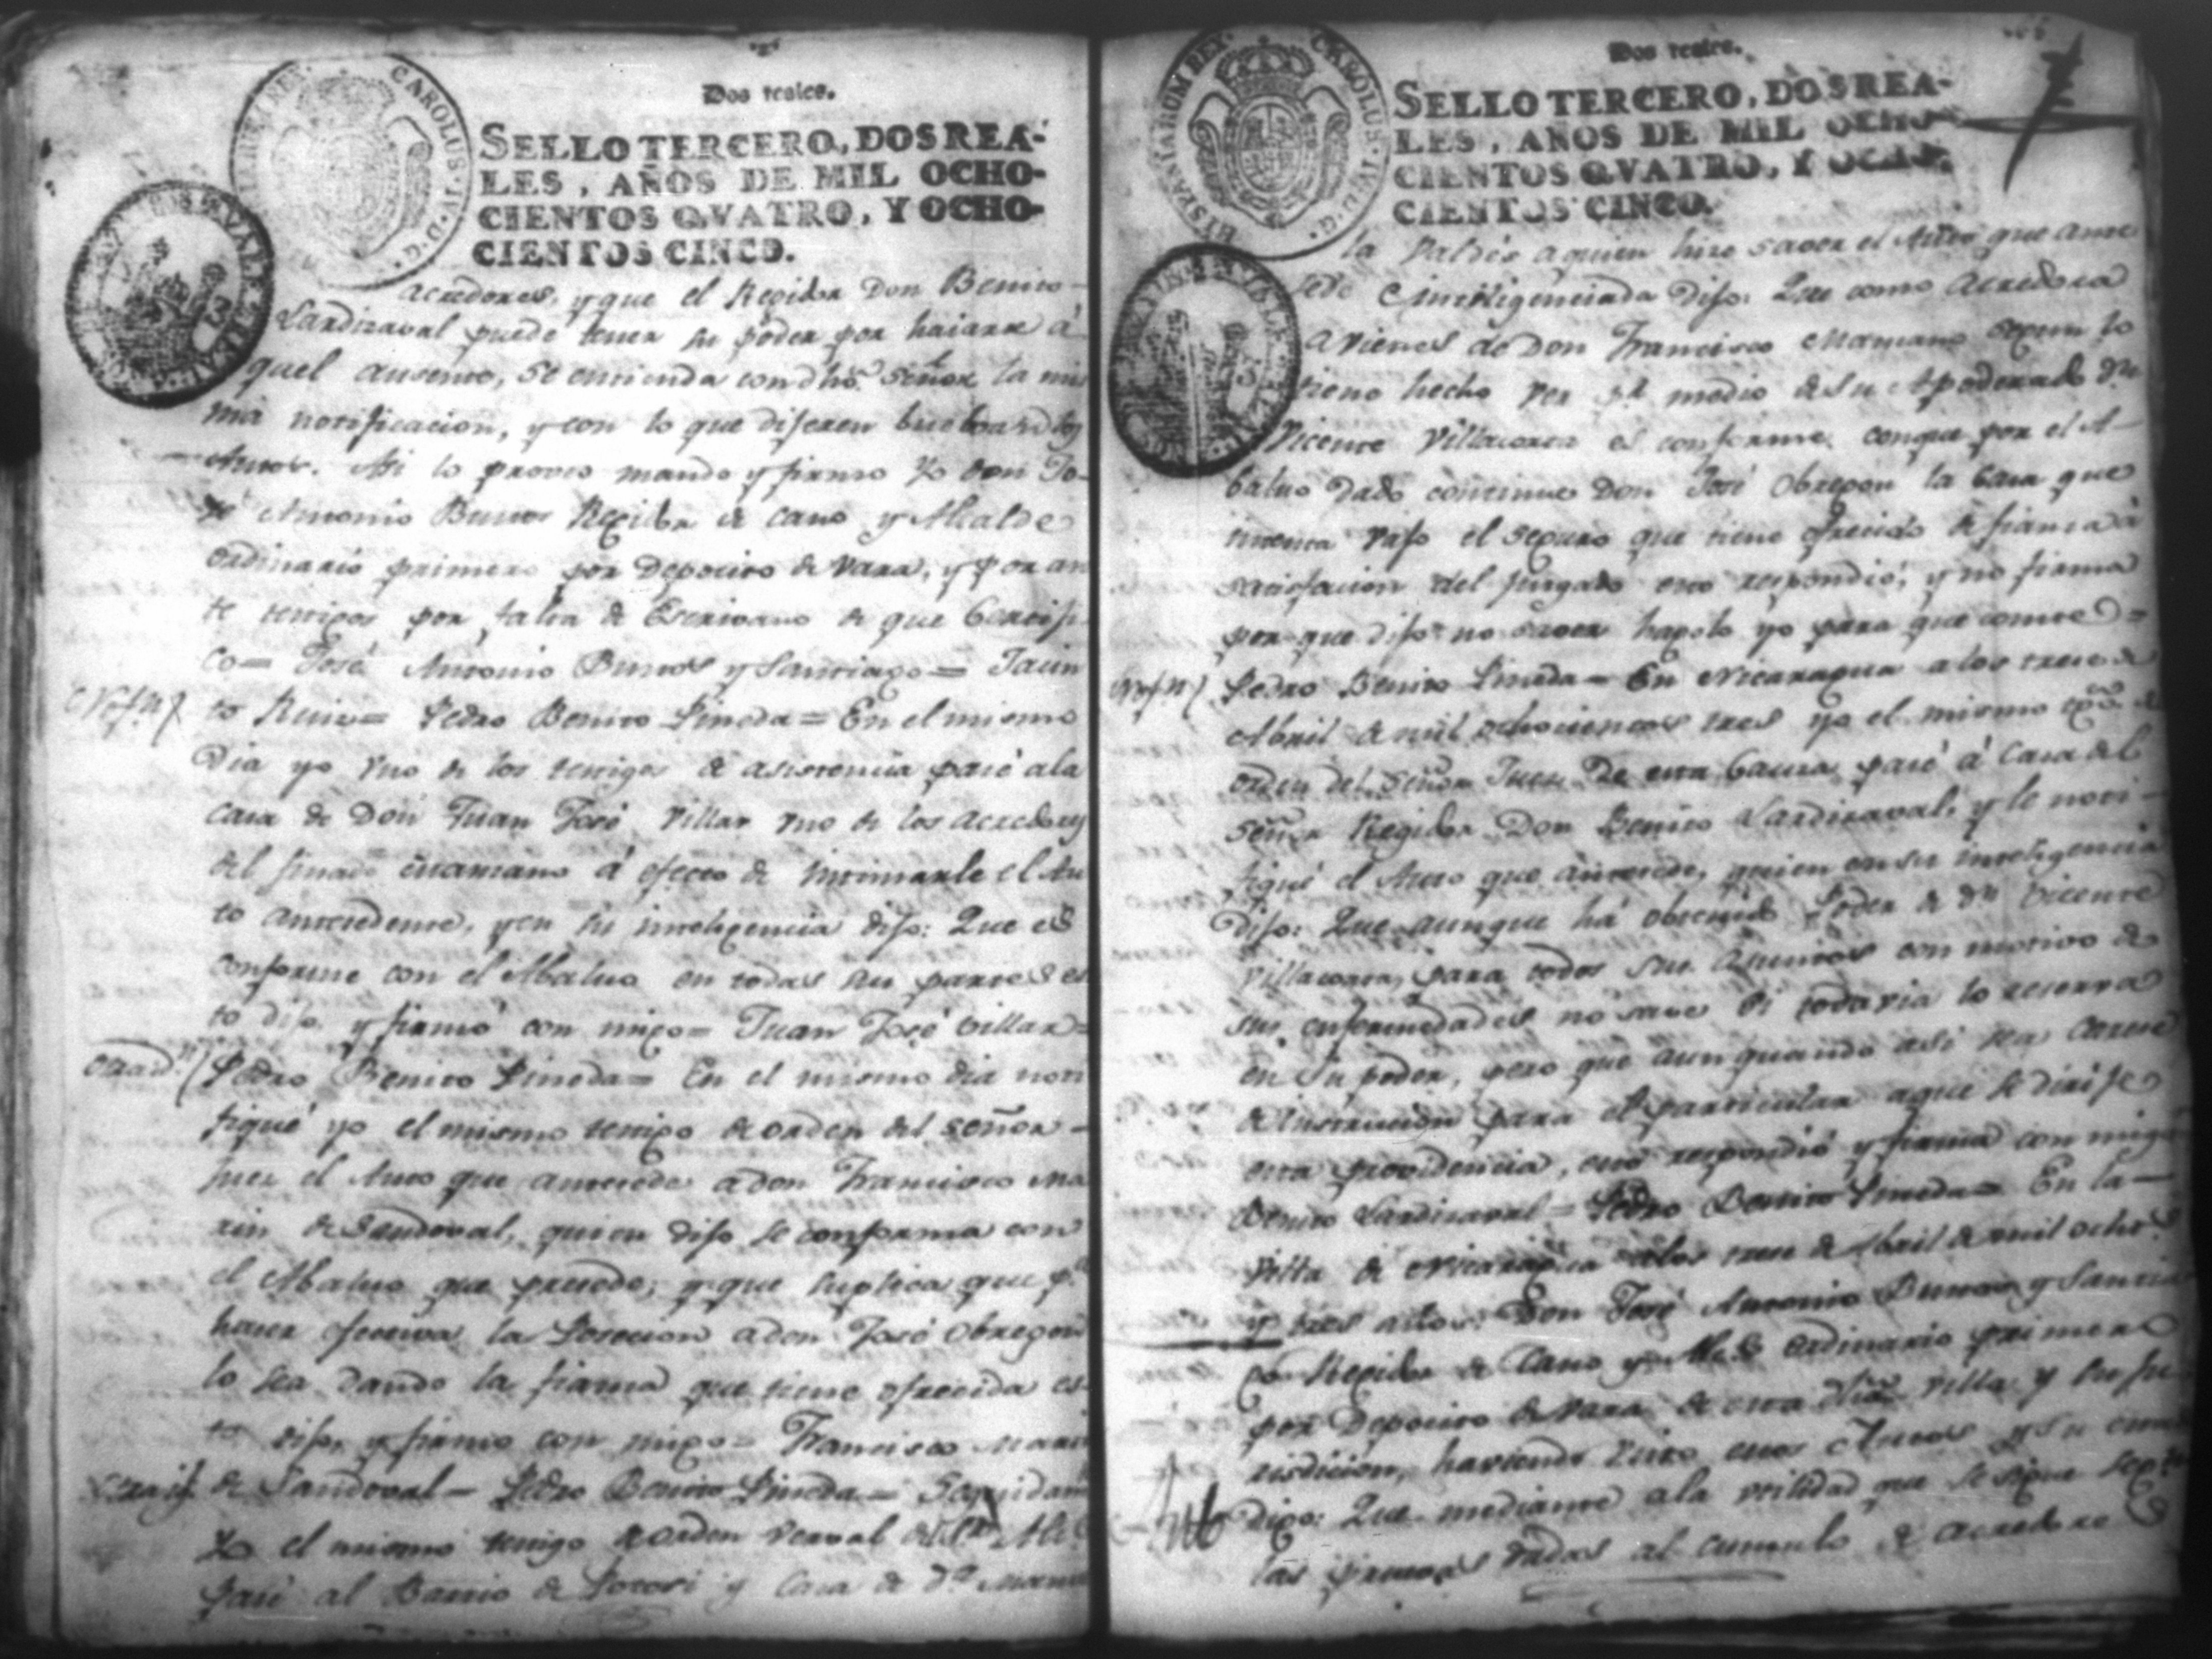 Dos reales.
SELLO TERCERO, DOS REA-
LES, AÑOS DE MIL OCHO-
CIENTOS QVATRO, Y OCHO-
CIENTOS CINCO.
CAROLUS·IV·D·G·
acredores, y que el Regidor Don Benito
Lardizaval puede tener su poder por hayarse á
quel ausente, se entienda con dho. señor la mis
ma notificacion, y con lo que dijeren buelvan los
Autos. Asi lo proveo mando y firmo Yo Don Jo-
sé Antonio Bustos Regidor de Cano y Alcalde
ordinario primero por Deposito de vara, y por an
te testigos por falta de Escrivano de que Certifi
co= José Antonio Bustos y Santiago= Jacin
to Ruiz= Pedro Benito Pineda= En el mismo
Dia yo uno de los testigos de asistencia pasé a la
casa de Don Juan José Villar uno de los acredores
del finado Mariano á efecto de intimarle el Au
to antecedente, y en su inteligencia dijo: Que es
conforme con el Abaluo en todas sus partes es
to dijo y firmó con migo= Juan José Villar=
otra
Pedro Benito Pineda= En el mismo dia noti
fiqué yo el mismo testigo de orden del señor
Juez el Auto que antecede a don Francisco Ma
rin de Sandoval, quien dijo se conforma con
el Abaluo que precede, y que suplica que pa.
hacer efectiva la Posecion a don José Obregon
lo sea dando la fianza que tiene ofrecida es
to dijo, y firmo con migo= Francisco Marin
de Sandoval= Pedro Benito Pineda= Seguidam
Yo el mismo testigo de orden verval del Sor. Alc
pasé al Barrio de Potosi y Casa de Da. Manue
Dos reales.
SELLO TERCERO, DOS REA-
LES, AÑOS DE MIL OCHO-
CIENTOS QVATRO, Y OCHO-
CIENTOS CINCO.
CAROLUS·IV·D·G· HISPANIARUM REX
la Valdés a quien hize saver el Auto que ante
sede é inteligenciada dijo: Que como acredora
a vienes de Don Francisco Mariano segun lo
tiene hecho ver por medio de su Apoderado Dn.
Vicente Villacorta es conforme con que por el A-
baluo dado continue Don José Obregon la Casa que
intenta vajo el seguro que tiene ofrecido de fianza á
satisfacion del Juzgado esto respondió, y no firma
por que dijo no saver hagolo yo para que conste=
Pedro Benito Pineda= En Nicaragua a los trece de
Abril de mil ochocientos tres yo el mismo
orden del Señor Juez de esta Causa pasé á Casa del
Señor Regidor Don Benito Lardizaval, y le noti-
fiqué el Auto que antecede, quien en su inteligencia
Dijo: Que aunque há obtenido Poder de Dn Vicente
Villacorta, para todos sus asuntos con motivo de
sus enfermedades no save si todavia lo reserva
en su poder, pero que aun quando asi sea carece
de instruccion para el particular a que se dirije
esta providencia, esto respondió y firma con migo
Benito Lardizaval= Pedro Benito Pineda= En la
Villa de Nicaragua a los trece de Abril de mil ochos.
y tres años: Don José Antonio Bustos y Santia
go Regidor de Cano y Alcde. ordinario primero
por Deposito de Vara de esta dha. villa y su ju
risdicion, haviendo visto estos Autos y su
Auto
Digo: Que mediante a la utilidad que se sigue
las dadas al cumulo de acredores